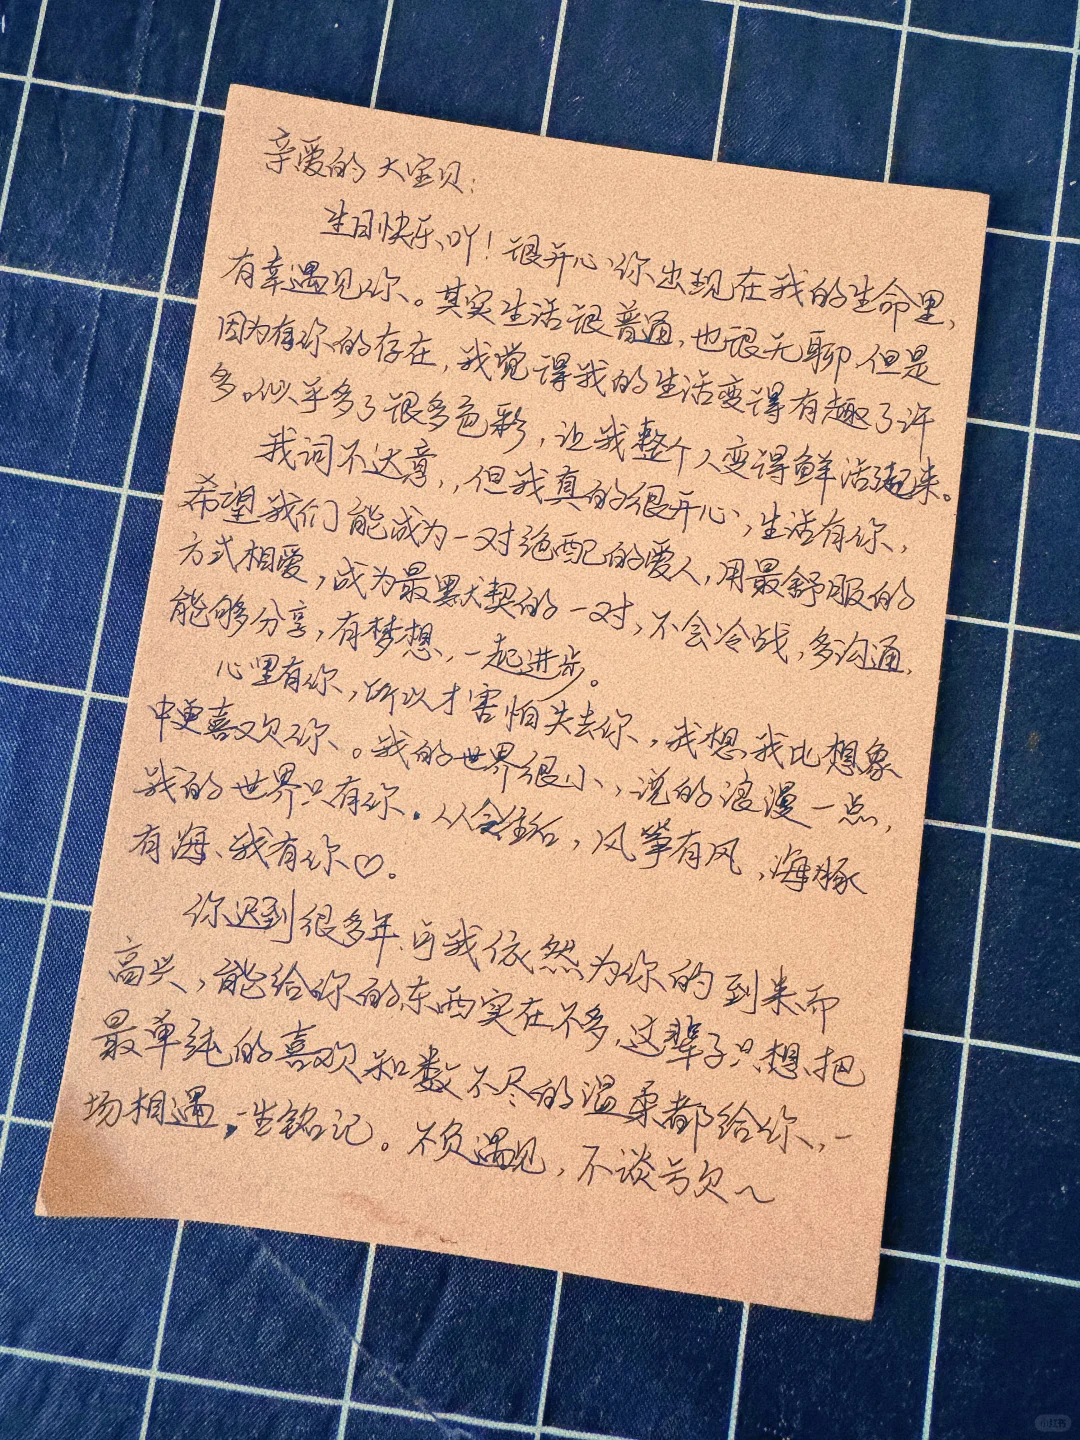 亲爱的大宝贝：
生日快乐吖！很开心你出现在我的生命里，
有幸遇见你。其实生活很普通，也很无聊，但是
因为有你的存在，我觉得我的生活变得有趣了许
多。似乎多了很多色彩，让我整个人变得鲜活起来。
我词不达意，，但我真的很开心，生活有你，
希望我们能成为一对绝配的爱人，用最舒服的
方式相爱，成为最默契的一对，不会冷战，多沟通，
能够分享，有梦想，一起进步。
心里有你，所以才害怕失去你，我想我比想象
中更喜欢你。我的世界很小，说的浪漫一点，
我的世界只有你。从今往后，风筝有风，海豚
有海、我有你♡。
你迟到很多年、可我依然为你的到来而
高兴，能给你的东西实在不多，这辈子只想把
最单纯的喜欢和数不尽的温柔都给你，一
场相遇，一生铭记。不负遇见，不谈亏欠～
小红书